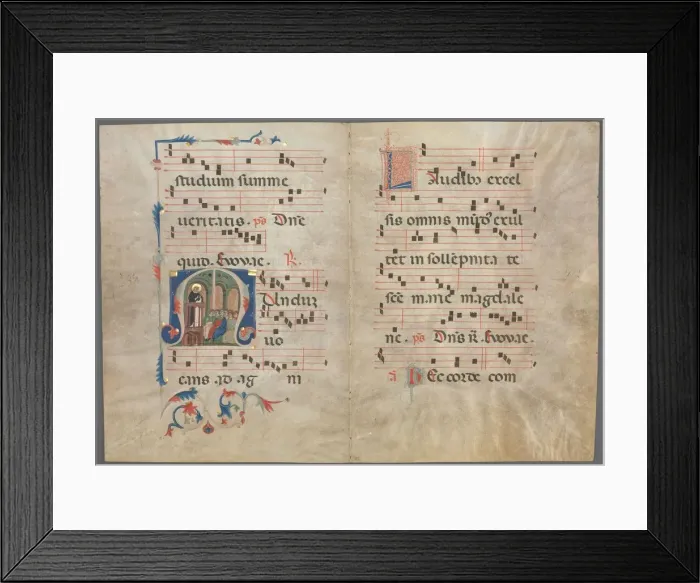 studium summe
ueritatis. ps Dñe
quid. Euouae. R.
Mundum
uo
cans ad ag ni
Laudibus excel
sis omnis mũdꝰ exul
tet in sollẽpnita te
scẽ marie magdale
ne. ps Dñs R. Euouae.
a Hec corde com